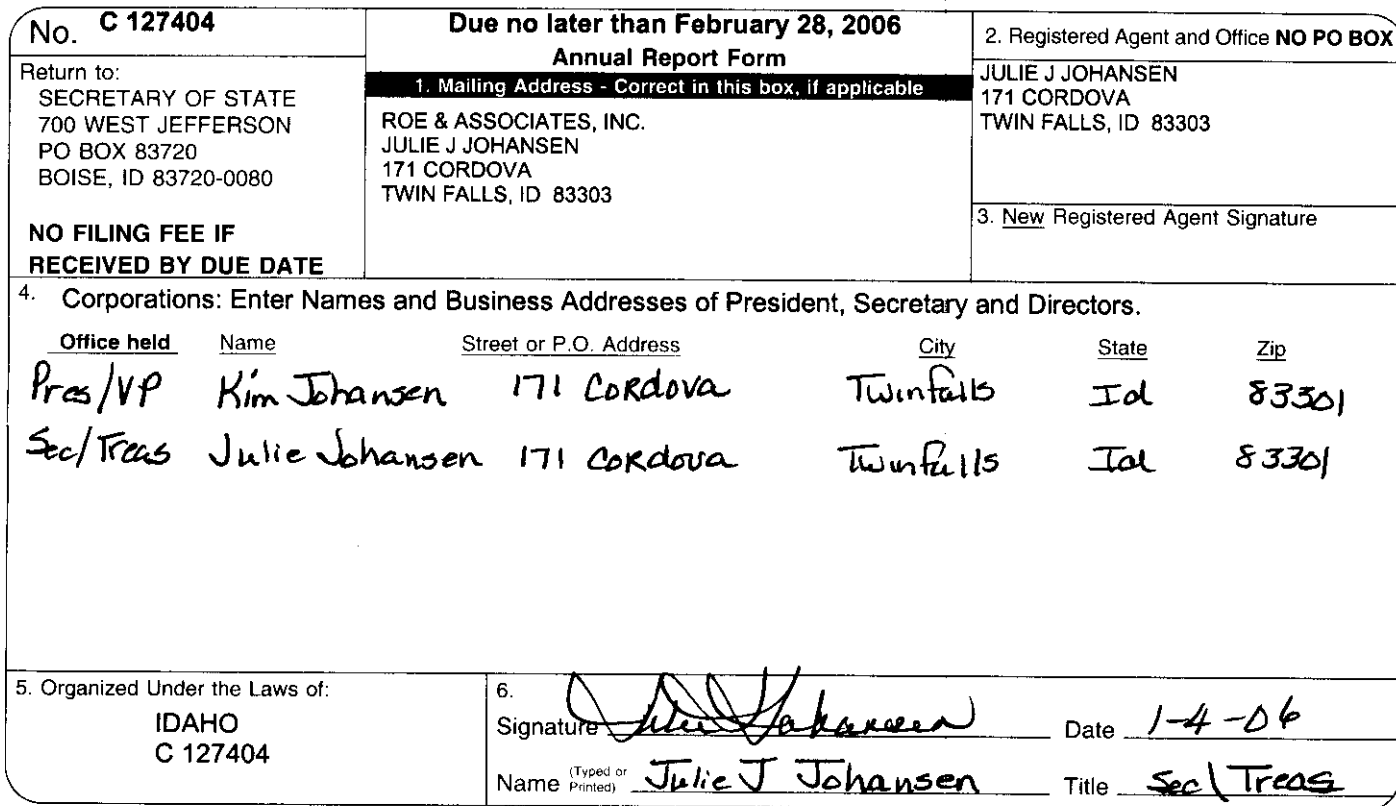 No. C 127404
Return to:
SECRETARY OF STATE
700 WEST JEFFERSON
PO BOX 83720
BOISE, ID 83720-0080
NO FILING FEE IF
RECEIVED BY DUE DATE
Due no later than February 28, 2006
Annual Report Form
1. Mailing Address - Correct in this box, if applicable
ROE & ASSOCIATES, INC.
JULIE J JOHANSEN
171 CORDOVA
TWIN FALLS, ID 83303
2. Registered Agent and Office NO PO BOX
JULIE J JOHANSEN
171 CORDOVA
TWIN FALLS, ID 83303
3. New Registered Agent Signature
4. Corporations: Enter Names and Business Addresses of President, Secretary and Directors.
Office held Name Street or P.O. Address City State Zip
Pres/VP Kim Johansen 171 Cordova Twinfalls Id 83301
Sec/Treas Julie Johansen 171 Cordova Twinfalls Id 83301
5. Organized Under the Laws of:
IDAHO
C 127404
6.
Signature Julie J Johansen Date 1-4-06
Name (Typed or Printed) Julie J Johansen Title Sec\Treas